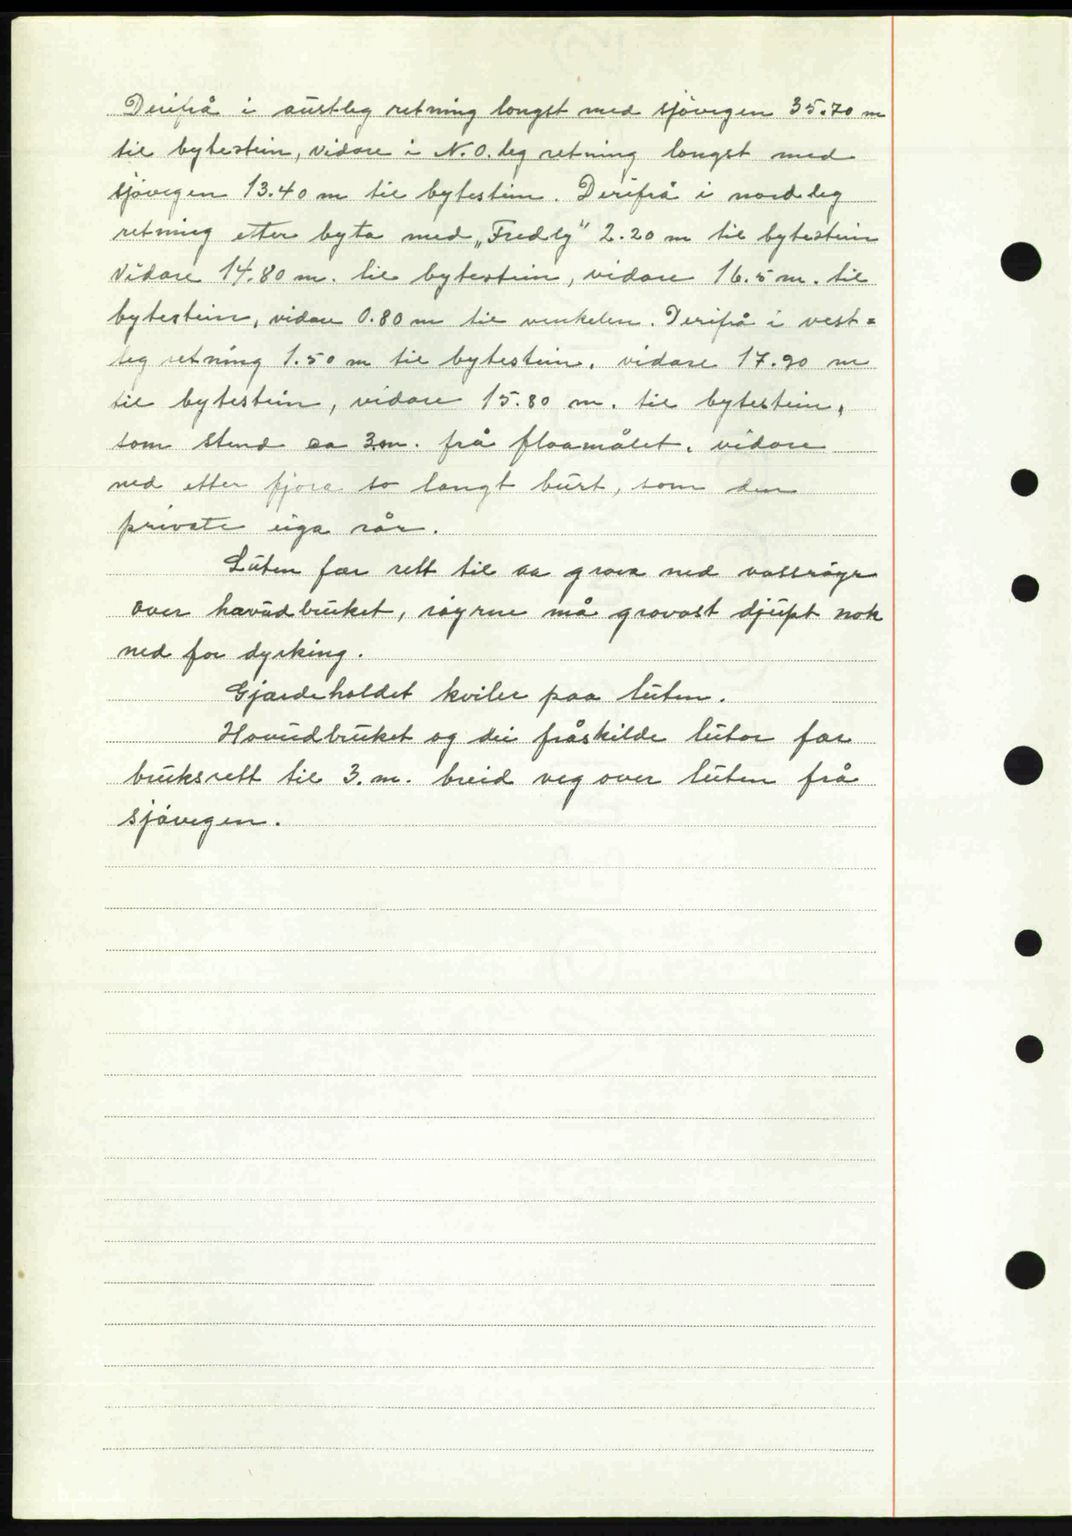 Derifrå i austleg retning longst med sjövegen 35.70 m
til bytestein, vidare i N.O. leg retning longst med
sjövegen 13.40 m til bytestein. Derifrå i nordleg
retning etter byta med „Fredly" 2.20 m til bytestein
vidare 14.80 m. til bytestein, vidare 16.5 m. til
bytestein, vidare 0.80 m til vinkelen. Derifrå i vest=
leg retning 1.50 m til bytestein. vidare 17.90 m
til bytestein, vidare 15.80 m. til bytestein,
som stend ca 3.m. frå floamålet. vidare
ned etter fjora so langt burt, som den
private eiga rår.
Luten fær rett til aa grava ned vassröyr
over havudbruket, röyrne må gravast djupt nok
ned for dyrking.
Gjærdeholdet kviler paa luten.
Hovudbruket og dei fråskilde lutar fær
bruksrett til 3.m. breid veg over luten frå
sjövegen.